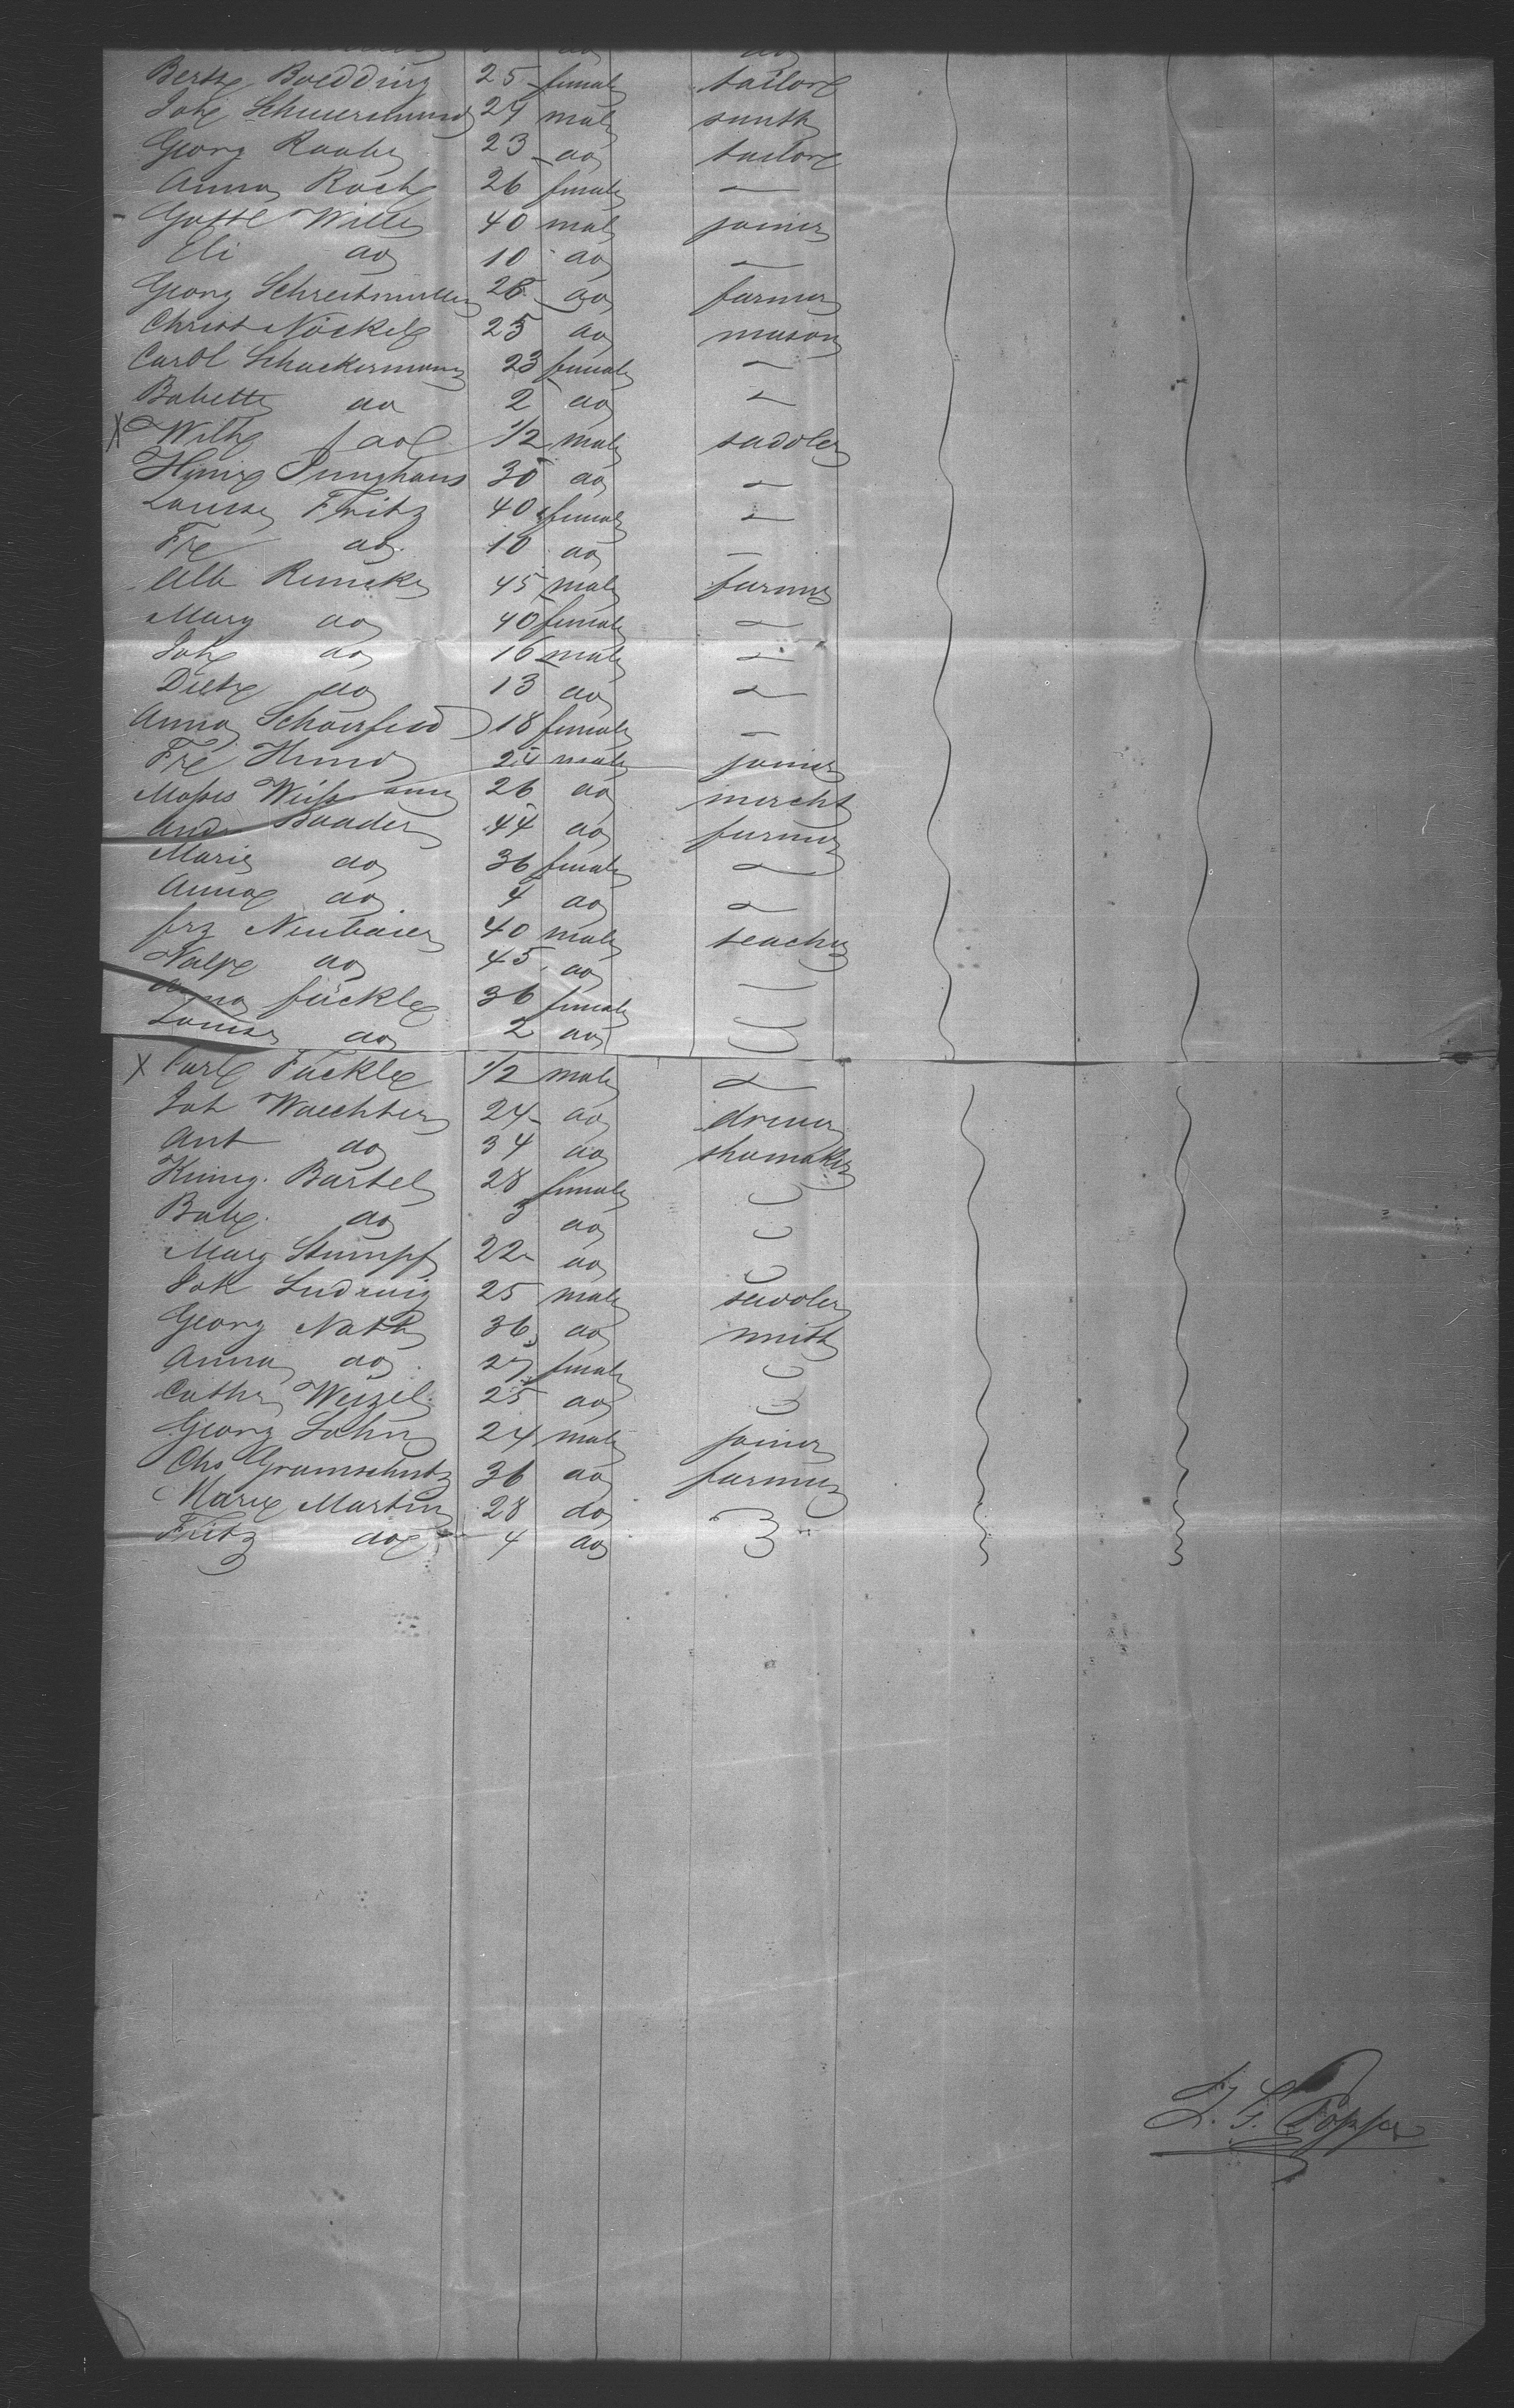 do
Berthe Boedding 25 female tailor
Joh Scheuermund 24 male smith
Georg Raabe 23 do tailor
Anna Roch 26 female —
Gottl Wille 40 male joiner
Eli do 10 do —
Georg Schreitmuller 28 do farmer
Christ Nöckel 25 do mason
Carol Schackermann 23 female —
Babette do 2 do —
X Wilh do 1/2 male saddler
Junghans 30 do —
Louise Fritz 40 female —
Fr do 10 do —
Alb Remeke 45 male farmer
Mary do 40 female —
Joh do 16 male —
Dieth do 13 do —
Anna Schoerfeld 18 female —
Fr Hund 25 male joiner
Moses 26 do mercht
And Baader 44 do farmer
Marie do 36 female —
Anna do 4 do —
frz Neubaier 40 male teacher
do 45 do
Anna fückle 36 female
Louise do 2 do
X Carl Fückle 1/2 male —
Joh Waechter 24 do
Ant do 34 do shumaker
Kunig. Bartel 28 female
Bab. do 3 do
Marg Stumpf 22 do
Joh Ludwig 25 male saddler
Georg Nath 36 do smith
Anna do 27 female
Cathr Weizel 25 do
Georg Sohn 24 male joiner
Chs Gramschutz 36 do farmer
Marie Martin 28 do
Fritz do 4 do
L. G. Popper